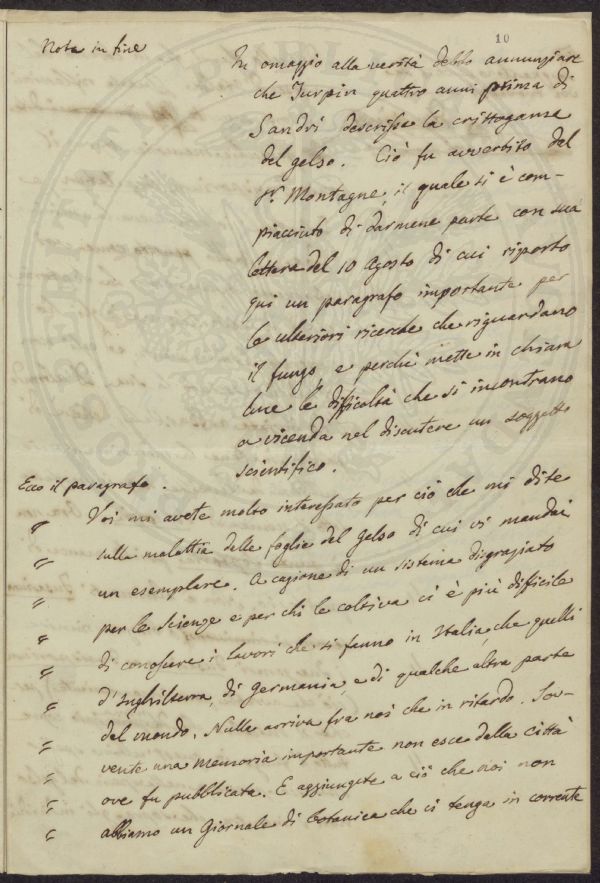 10
Nota in fine
In omaggio alla verità debbo annunziare
che Turpin quattro anni prima di
Sandri descrisse la crittogama
del gelso. Ciò fu avvertito dal
Sr. Montagne, il quale si è com-
piacciuto di darmene parte con sua
lettera del 10 Agosto di cui riporto
qui un paragrafo importante per
le ulteriori ricerche che riguardano
il fungo, e perchè mette in chiara
luce le difficoltà che si incontrano
a vicenda nel discutere un soggetto
scientifico.
Ecco il paragrafo.
" Voi mi avete molto interessato per ciò che mi dite
" sulla malattia delle foglie del gelso di cui vi mandai
" un esemplare. A cagione di un sistema disgraziato
" per le scienze e per chi le coltiva ci è più difficile
" di conoscere i lavori che si fanno in Italia, che quelli
" d'Inghilterra, di Germania, e di qualche altra parte
" del mondo. Nulla arriva fra noi che in ritardo. Sov-
" vente una memoria importante non esce dalla città
" ove fu pubblicata. E aggiungete a ciò che noi non
" abbiamo un Giornale di botanica che ci tenga in corrente